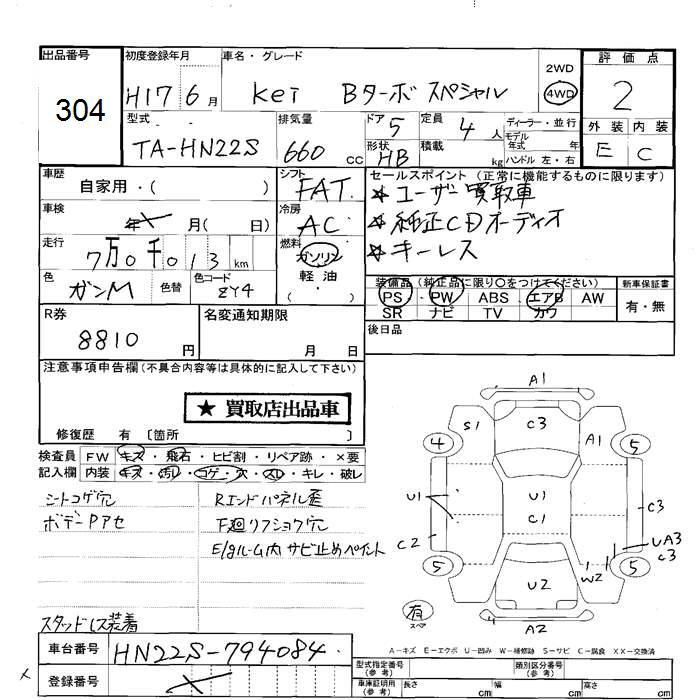 出品番号
304
初度登録年月
H17 6月
車名・グレード
Kei Bターボスペシャル
2WD
4WD
評価点
2
外装 内装
E C
型式
TA-HN22S
排気量
660 cc
ドア 5
形状 HB
定員 4 人
積載 kg
ディーラー・並行
モデル
年式 年
ハンドル 左・右
車歴
自家用・( )
シフト
FAT
セールスポイント(正常に機能するものに限ります)
★ユーザー買取車
★純正CDオーディオ
★キーレス
車検
年 月( 日)
冷房
AC
走行
7万0千013km
燃料
ガソリン
軽油
( )
色
ガンM
色替
色コード
ZY4
装備品(純正品に限り○をつけてください)
PS PW ABS エアB AW
SR ナビ TV カワ
新車保証書
有・無
R券
8810円
名変通知期限
月 日
後日品
注意事項申告欄(不具合内容等は具体的に記入して下さい)
★ 買取店出品車
修復歴 有 〔箇所 〕
検査員
記入欄
FW キズ・飛石・ヒビ割・リペア跡・×要
内装 キズ・汚レ・コゲ・穴・スレ・キレ・破レ
シートコゲ穴
ボデーPアセ
Rエンドパネル歪
下廻リフショク穴
E/gルーム内サビ止めペイント
スタッドレス装着
A1
S1 C3 A1
4 5
U1 U1 C3
C1
C2 UA3
C3
5 W2 5
U2
有
スペア
A2
A-キズ E-エクボ U-凹み W-補修跡 S-サビ C-腐食 XX-交換済
車台番号
HN22S-794084
登録番号
型式指定番号
(参考)
類別区分番号
(参考)
車庫証明用
(参考)
長さ cm
幅 cm
高さ cm